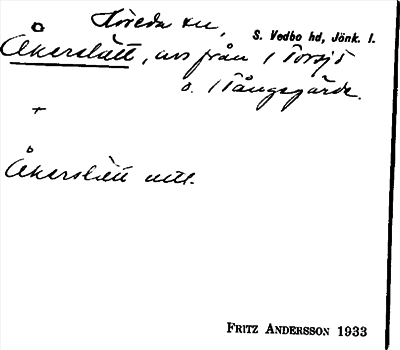 Höreda sn, S. Vedbo hd, Jönk. l.
Åkerslätt, avs från 1 Torsjö
o. 1 Tångsgärde.
+
Åkerslätt utl.
FRITZ ANDERSSON 1933